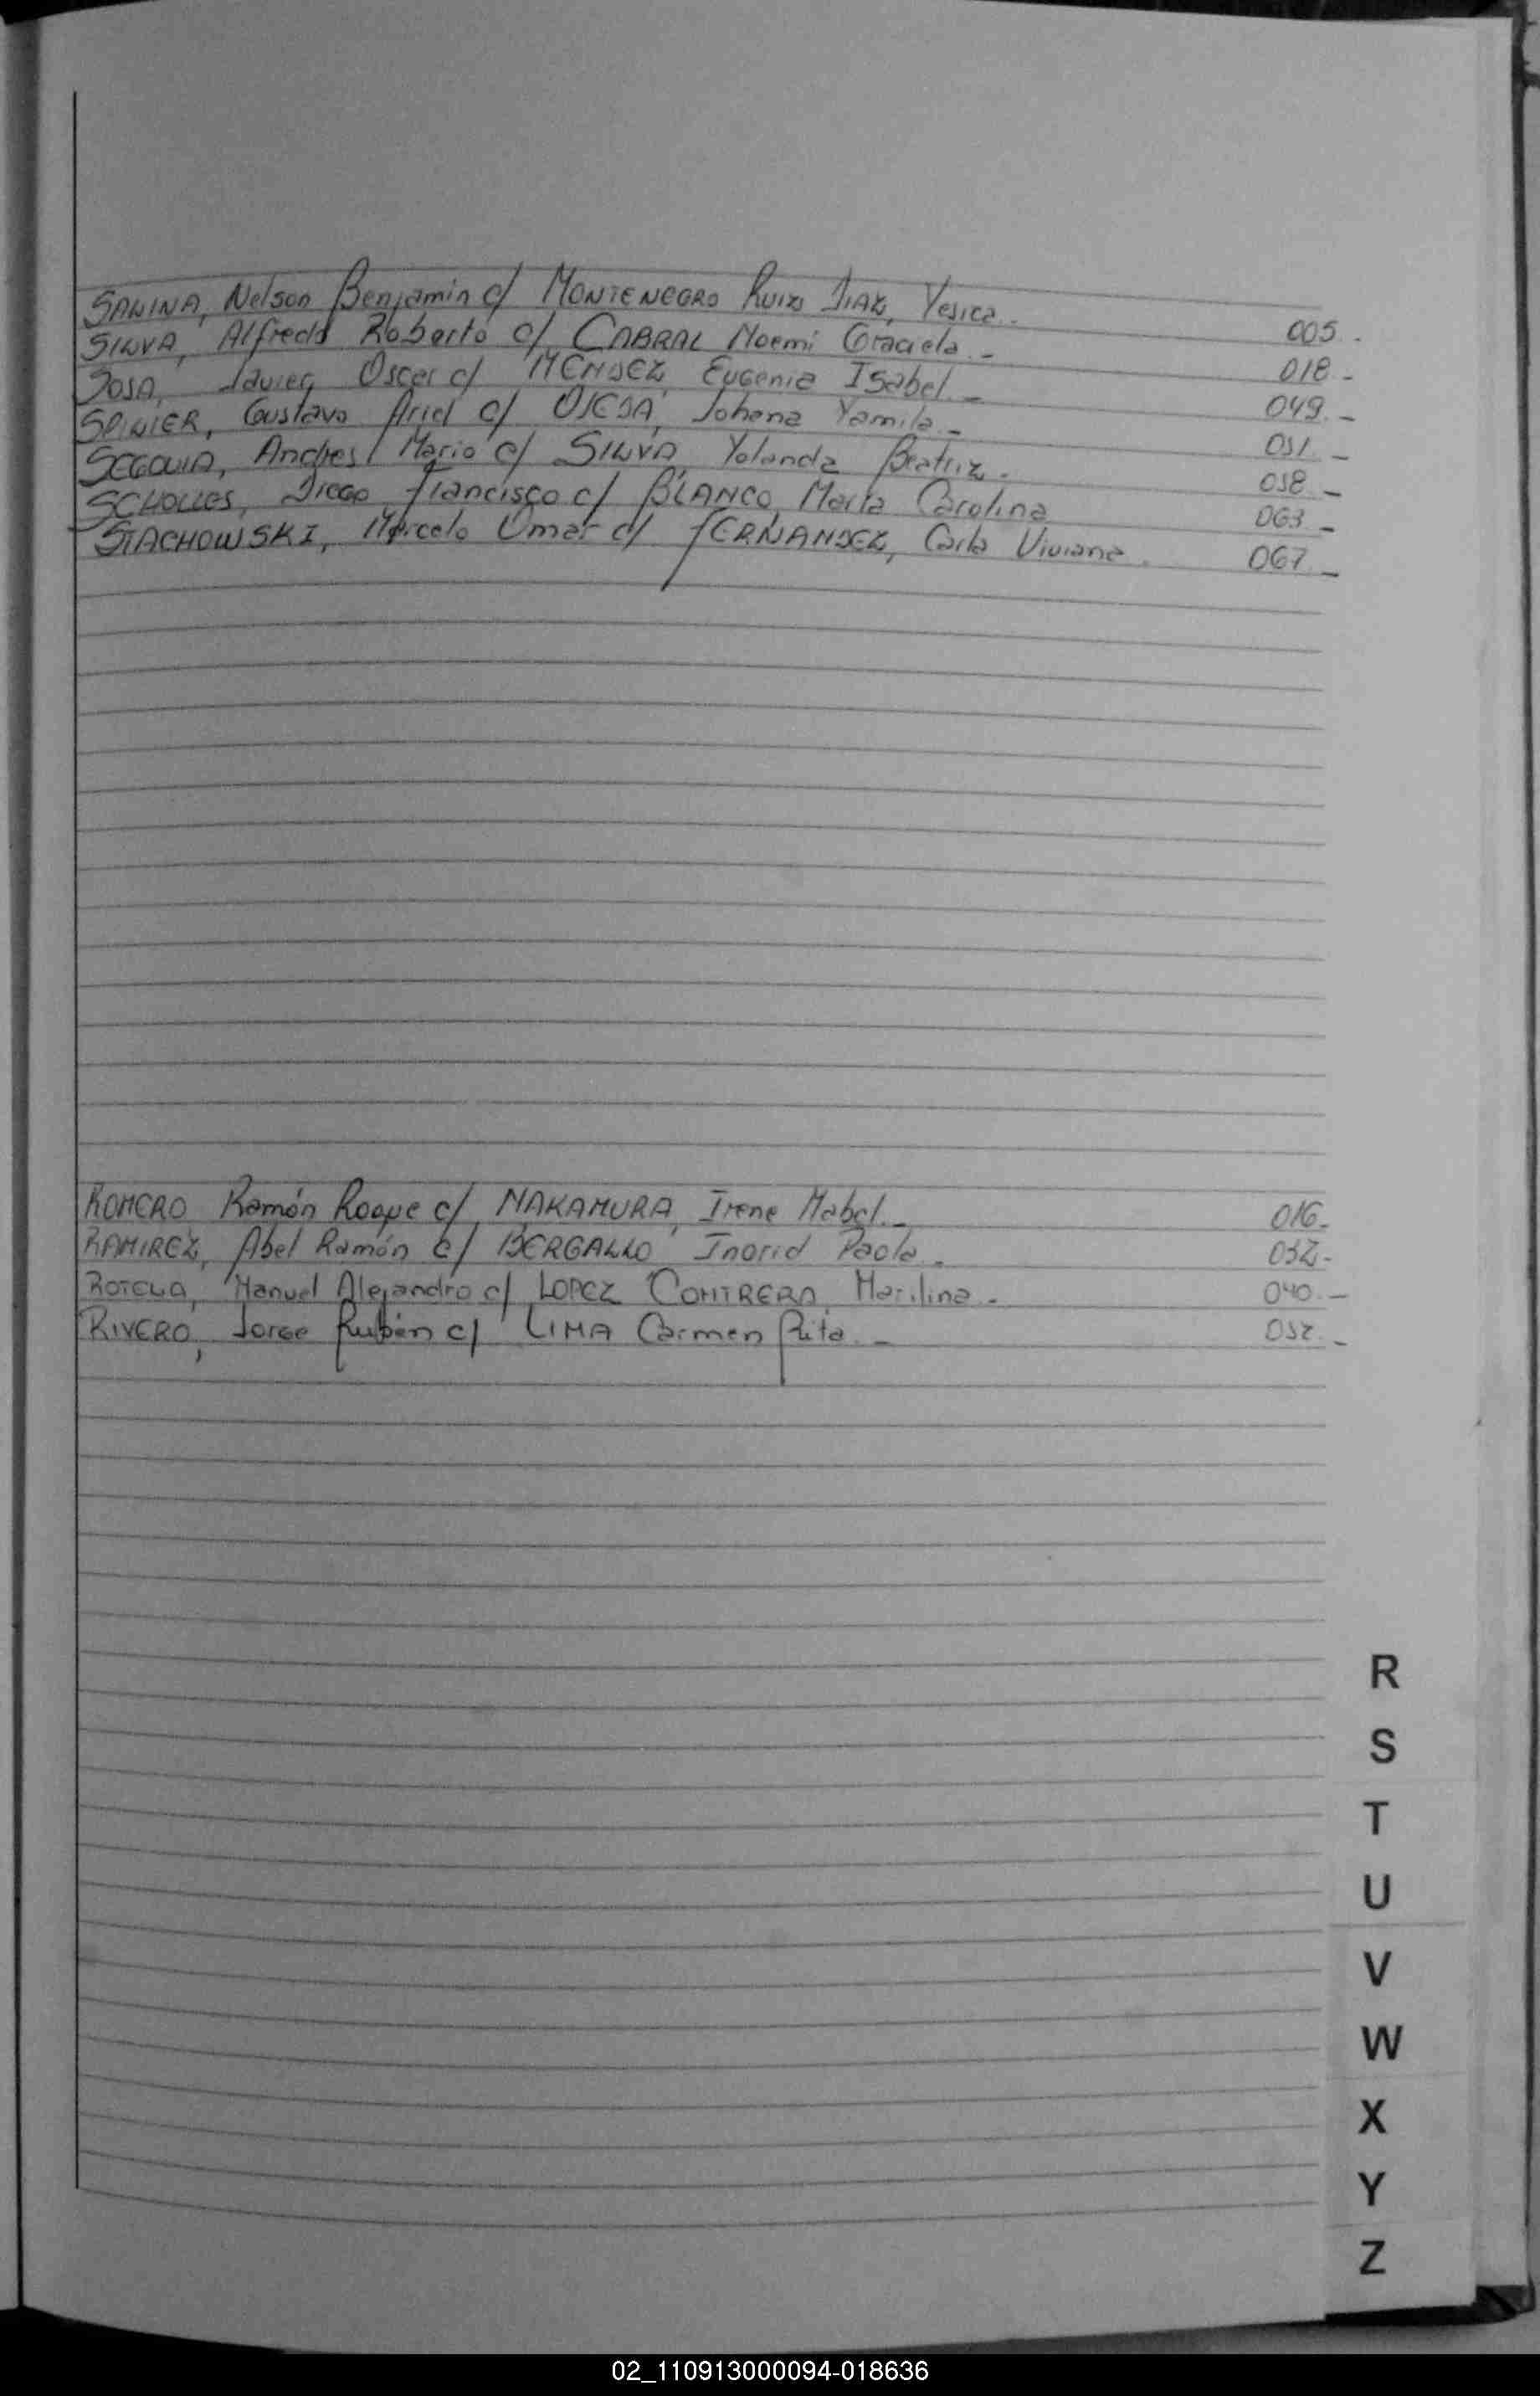 SALINA, Nelson Benjamin c/ MONTENEGRO RUIZ DIAZ, Yesica.. 005.
SILVA, Alfredo Roberto c/ CABRAL Noemi Graciela.- 018.-
SOSA, Javier Oscar c/ MENDEZ Eugenia Isabel.- 049.-
Gustavo Ariel c/ OJEDA, Johana Yamila.- 051.-
SEGOVIA, Andres Mario c/ SILVA, Yolanda Beatriz. 058.-
SCHOLLES, Diego Francisco c/ BLANCO, María Carolina 063.-
STACHOWSKI, Marcelo Omar c/ FERNANDEZ, Carla Viviana. 067.-
ROMERO Ramón Roque c/ NAKAMURA, Irene Mabel.- 016.-
RAMIREZ, Abel Ramón c/ BERGALLO Ingrid Paola.
ROTELA, Manuel Alejandro c/ LOPEZ CONTRERA Marilina.- 040.-
RIVERO, Jorge Rubén c/ LIMA Carmen Rita.-
R
S
T
U
V
W
X
Y
Z
02_110913000094-018636